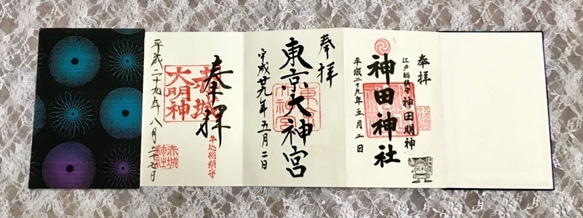 奉拝
江戸総鎮守
神田明神
神田神社
平成二十九年五月二日
奉拝
東京大神宮
平成廿九年五月二日
奉拝
赤城
大明神
牛込総鎮守
赤城
神社
平成二十九年八月